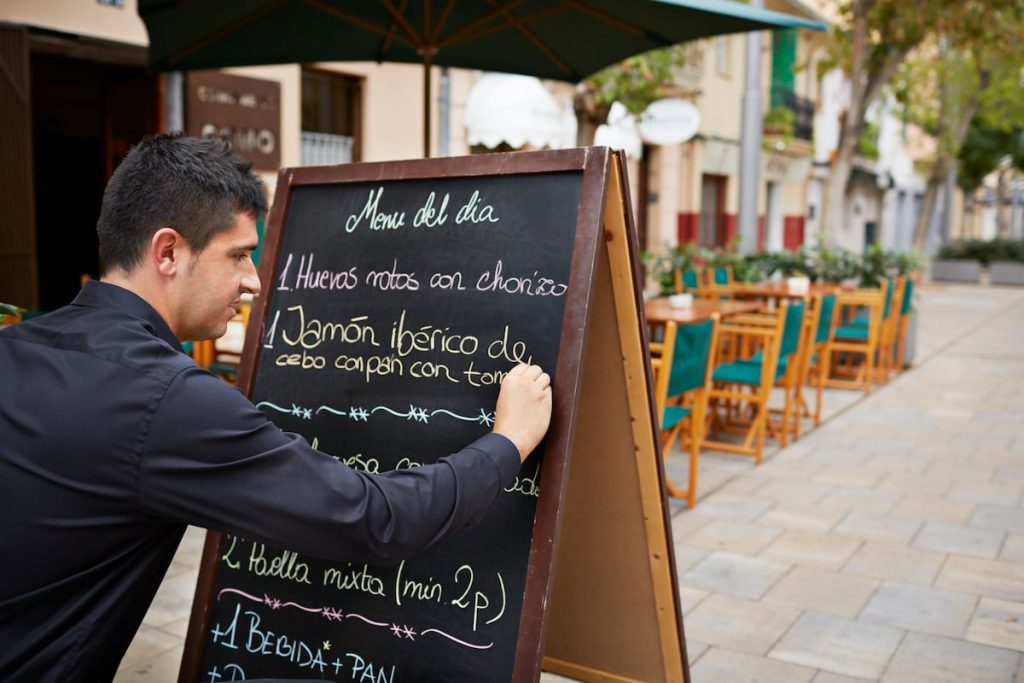 COMO
Menu del dia
1 Huevos rotos con chorizo
1 Jamón ibérico de
cebo con pan con tom
2 Paella mixta (min. 2p)
+1 BEBIDA + PAN